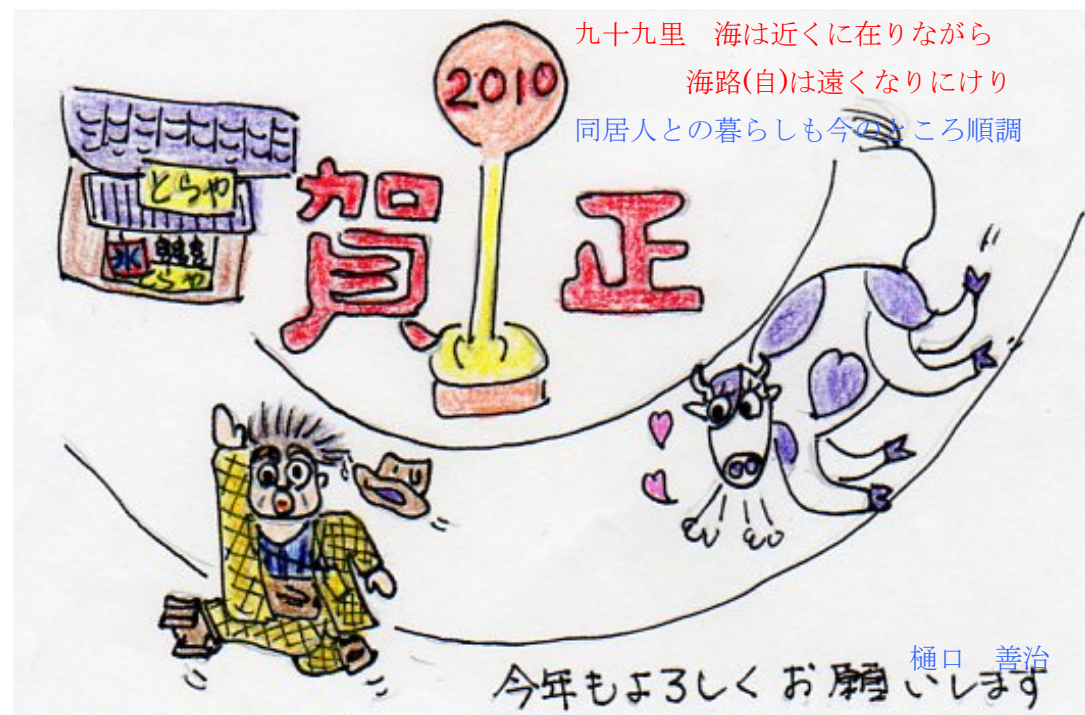 九十九里　海は近くに在りながら
海路(自)は遠くなりにけり
同居人との暮らしも今のところ順調
2010
とらや
賀正
氷
とらや
樋口　善治
今年もよろしくお願いします